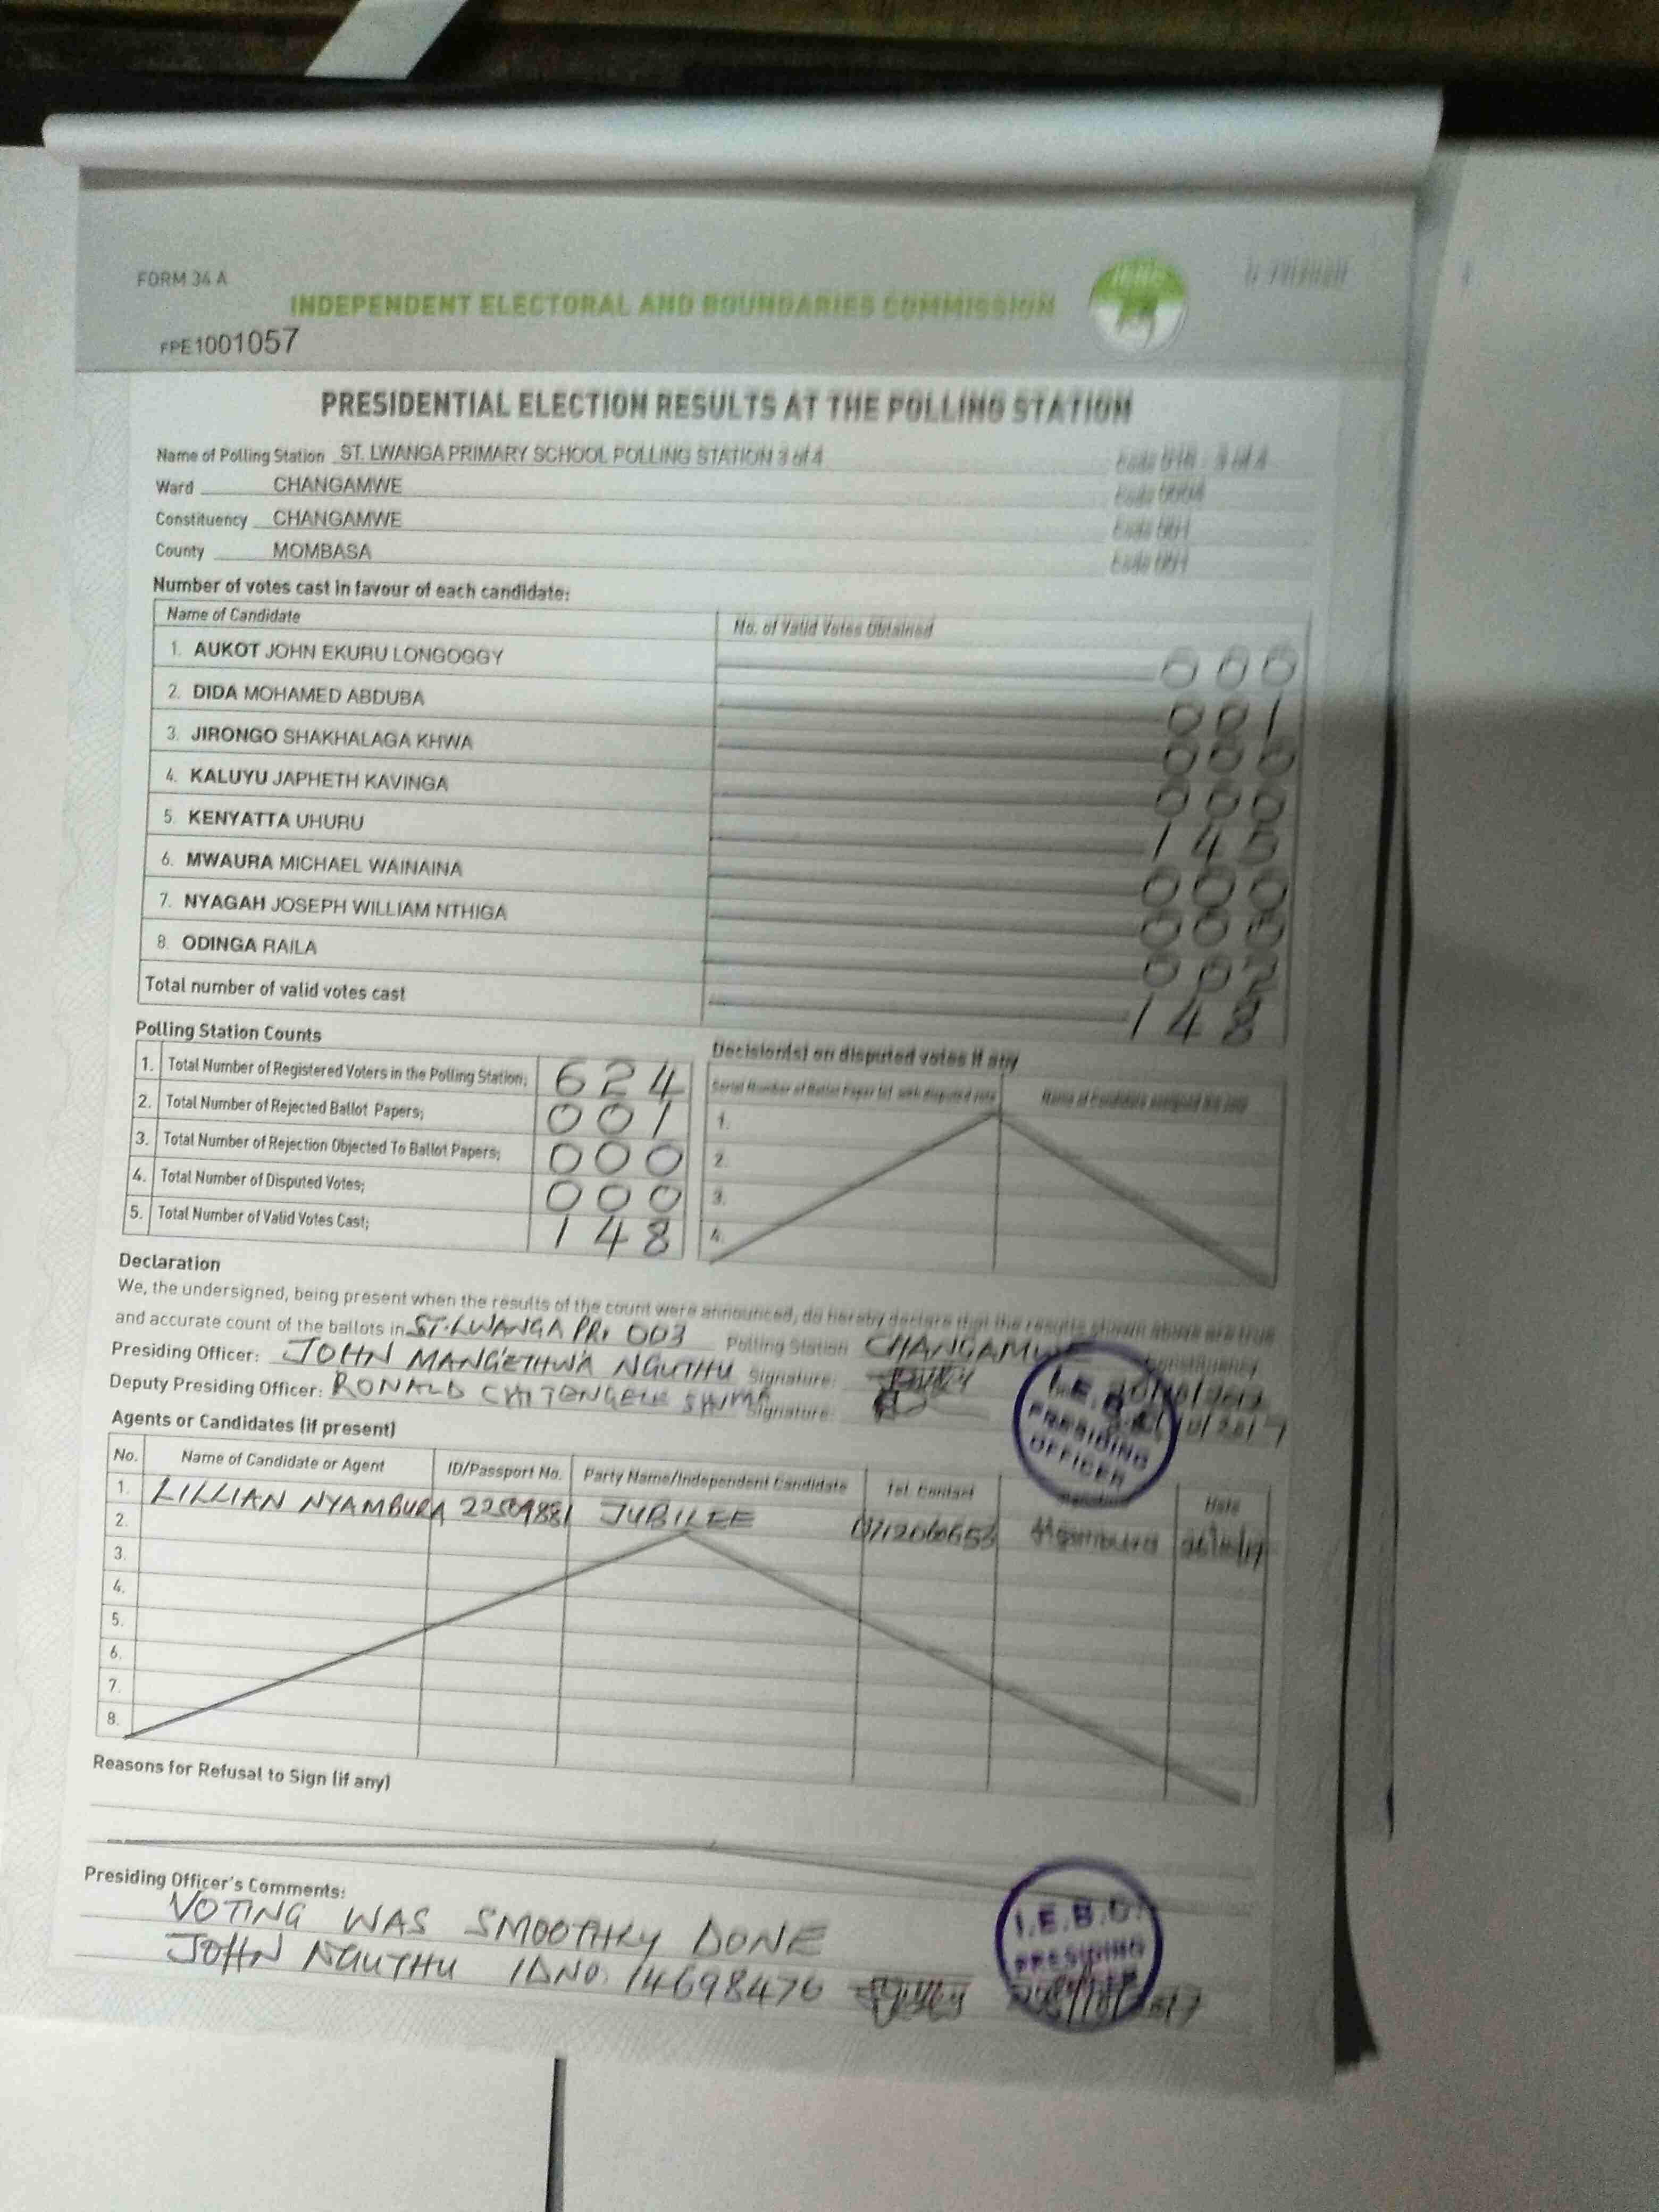 FORM 34 A
INDEPENDENT ELECTORAL AND BOUNDARIES COMMISSION
FPE1001057
PRESIDENTIAL ELECTION RESULTS AT THE POLLING STATION
Name of Polling Station ST. LWANGA PRIMARY SCHOOL POLLING STATION 3 of 4 Code 016 - 3 of 4
Ward CHANGAMWE Code 0004
Constituency CHANGAMWE Code 001
County MOMBASA Code 001
Number of votes cast in favour of each candidate:
Name of Candidate No. of Valid Votes Obtained
1. AUKOT JOHN EKURU LONGOGGY 000
2. DIDA MOHAMED ABDUBA 001
3. JIRONGO SHAKHALAGA KHWA 000
4. KALUYU JAPHETH KAVINGA 000
5. KENYATTA UHURU 145
6. MWAURA MICHAEL WAINAINA 000
7. NYAGAH JOSEPH WILLIAM NTHIGA 000
8. ODINGA RAILA 002
Total number of valid votes cast 148
Polling Station Counts
1. Total Number of Registered Voters in the Polling Station; 624
2. Total Number of Rejected Ballot Papers; 001
3. Total Number of Rejection Objected To Ballot Papers; 000
4. Total Number of Disputed Votes; 000
5. Total Number of Valid Votes Cast; 148
Decision(s) on disputed votes if any
Serial Number of Ballot Paper (s) with disputed vote Name of Candidate assigned the vote
1.
2.
3.
4.
Declaration
We, the undersigned, being present when the results of the count were announced, do hereby declare that the results shown above are true
and accurate count of the ballots in ST. LWANGA PRI 003 Polling Station CHANGAMWE Constituency
Presiding Officer: JOHN MANGETHWA NGUTHU Signature:
Deputy Presiding Officer: RONALD CHITENGELE Signature:
I.E.B.C.
PRESIDING
OFFICER
Agents or Candidates (if present)
No. Name of Candidate or Agent ID/Passport No. Party Name/Independent Candidate Tel. Contact Date
1. LILLIAN NYAMBURA JUBILEE 26/10/17
2.
3.
4.
5.
6.
7.
8.
Reasons for Refusal to Sign (if any)
Presiding Officer's Comments:
VOTING WAS SMOOTHLY DONE
JOHN NGUTHU IDNO. 14698476
I.E.B.C.
PRESIDING